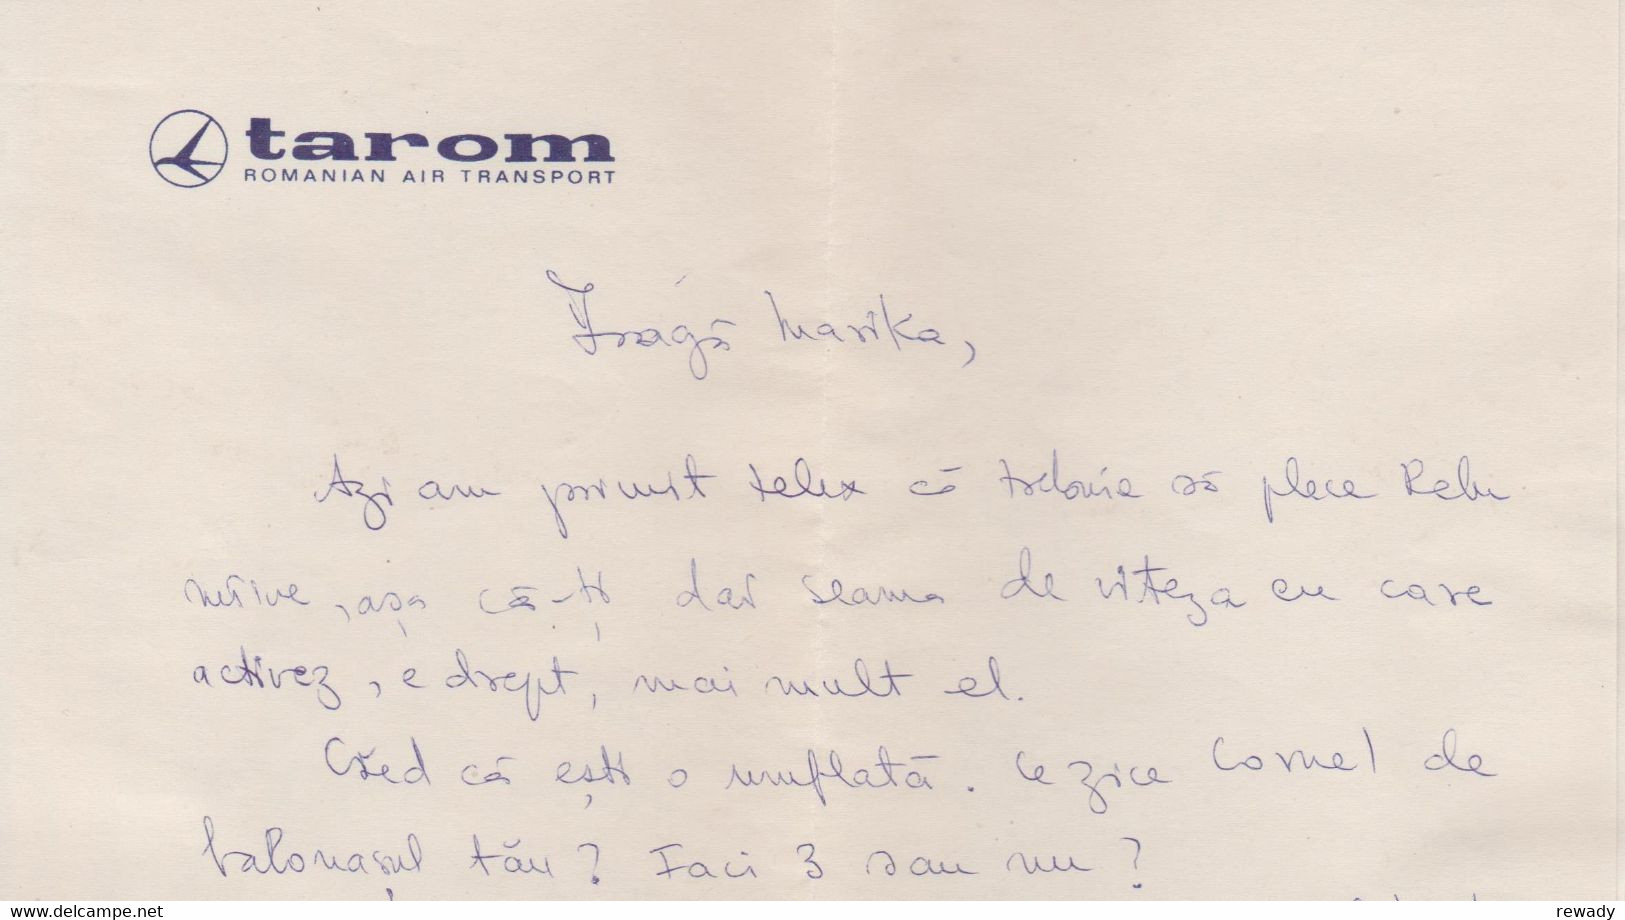 tarom
ROMANIAN AIR TRANSPORT
Dragă Marika,
Azi am primit telex că trebuie să plece Relu
mîine, așa că-ți dai seama de viteza cu care
activez, e drept, mai mult el.
Cred că ești o umflată. Ce zice Cornel de
balonașul tău? Faci 3 sau nu?
www.delcampe.net
rewady